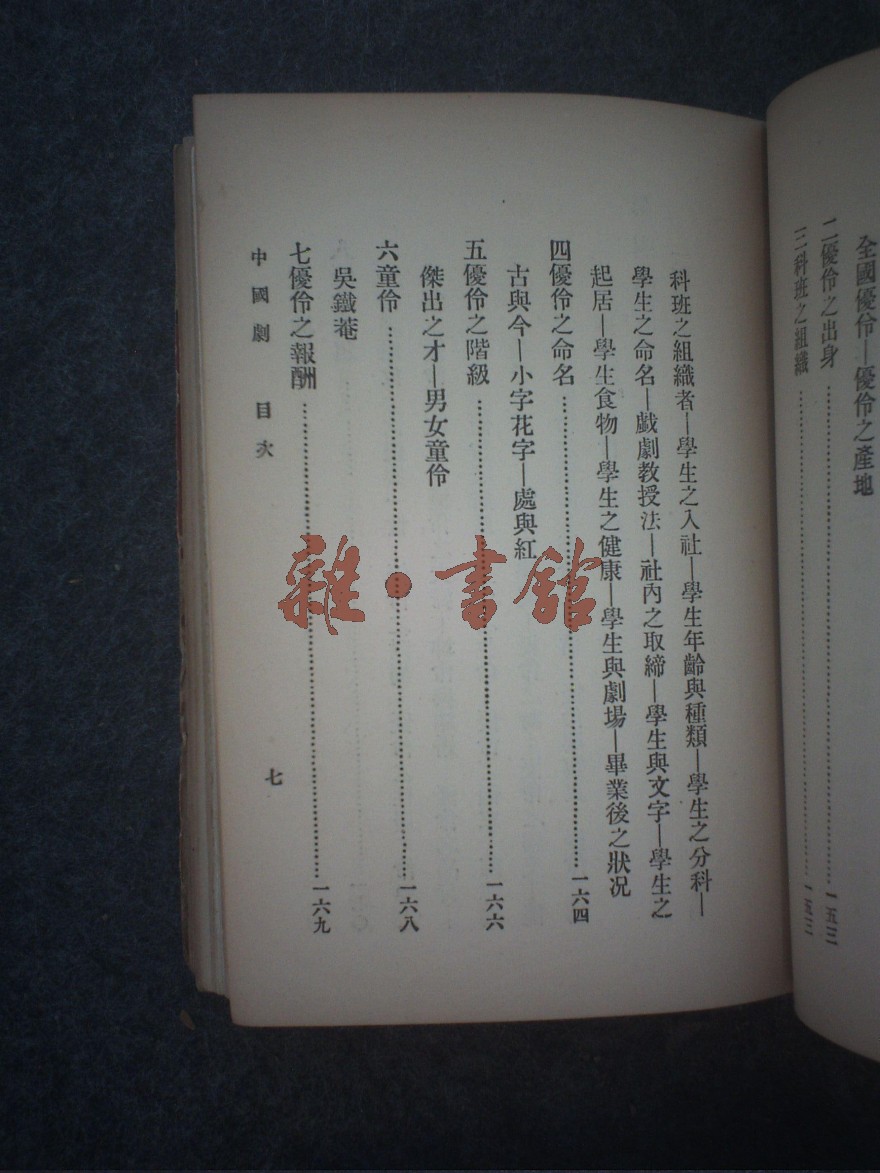 全國優伶—優伶之產地
二優伶之出身……一五三
三科班之組織……一五三
科班之組織者—學生之入社—學生年齡與種類—學生之分科—
學生之命名—戲劇教授法—社內之取締—學生與文字—學生之
起居—學生食物—學生之健康—學生與劇場—畢業後之狀况
四優伶之命名……一六四
古與今—小字花字—處與紅
五優伶之階級……一六六
傑出之才—男女童伶
六童伶……一六八
吳鐵菴
七優伶之報酬……一六九
中國劇 目次 七
雜·書館